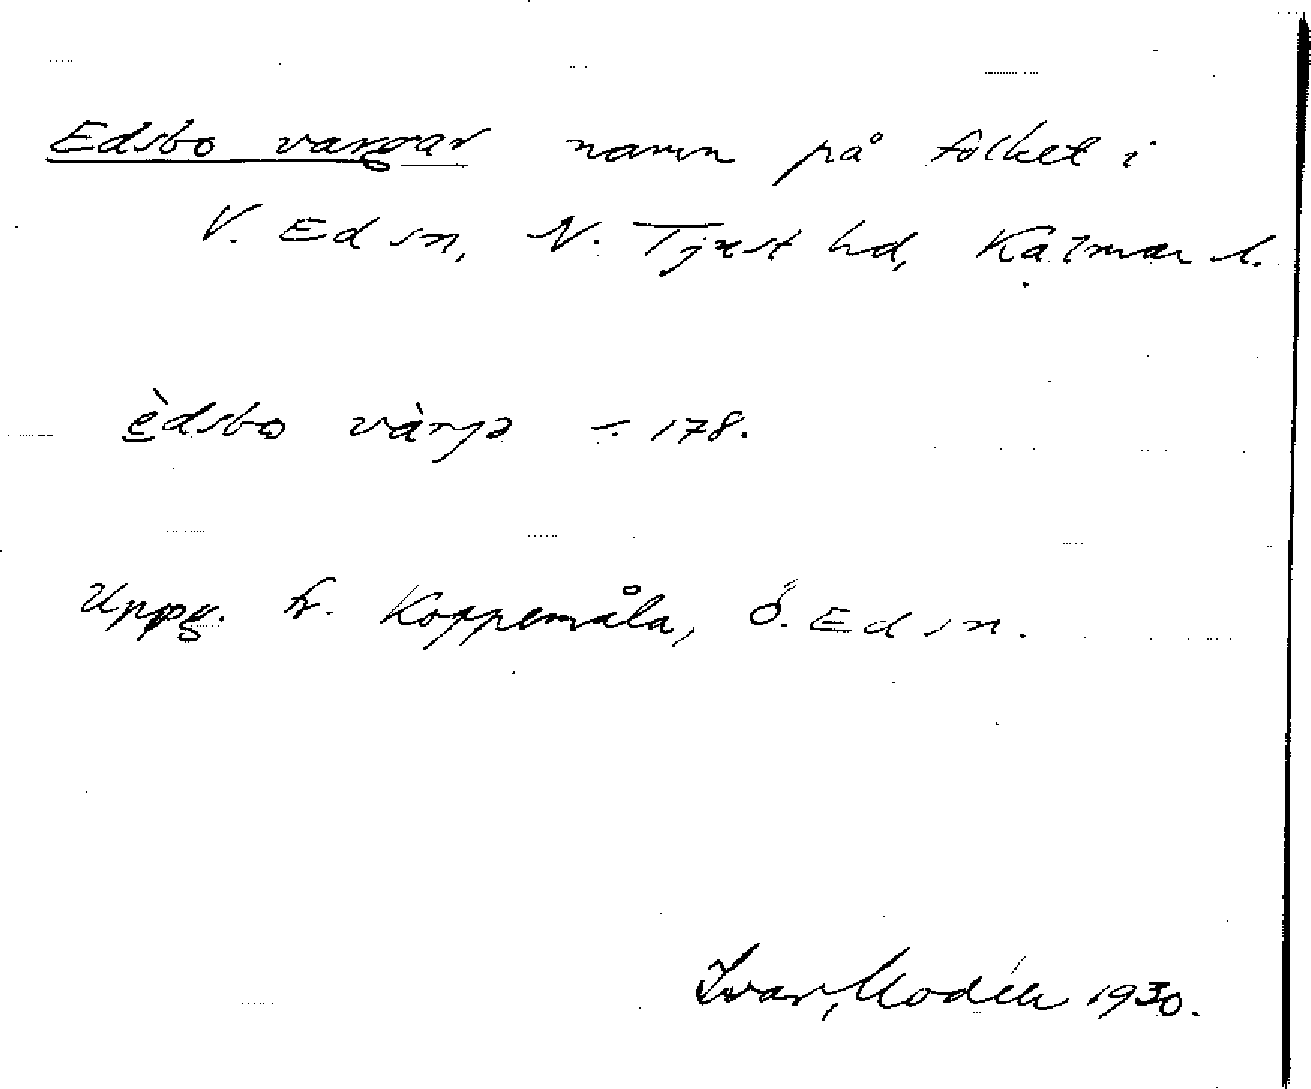 Edsbo vargar namn på folket i
V. Ed sn, N. Tjust hd, Kalmar l.
èdsbo várjə 178.
Uppg. fr. Koppemåla, Ö. Ed sn.
Ivar Modéer 1930.